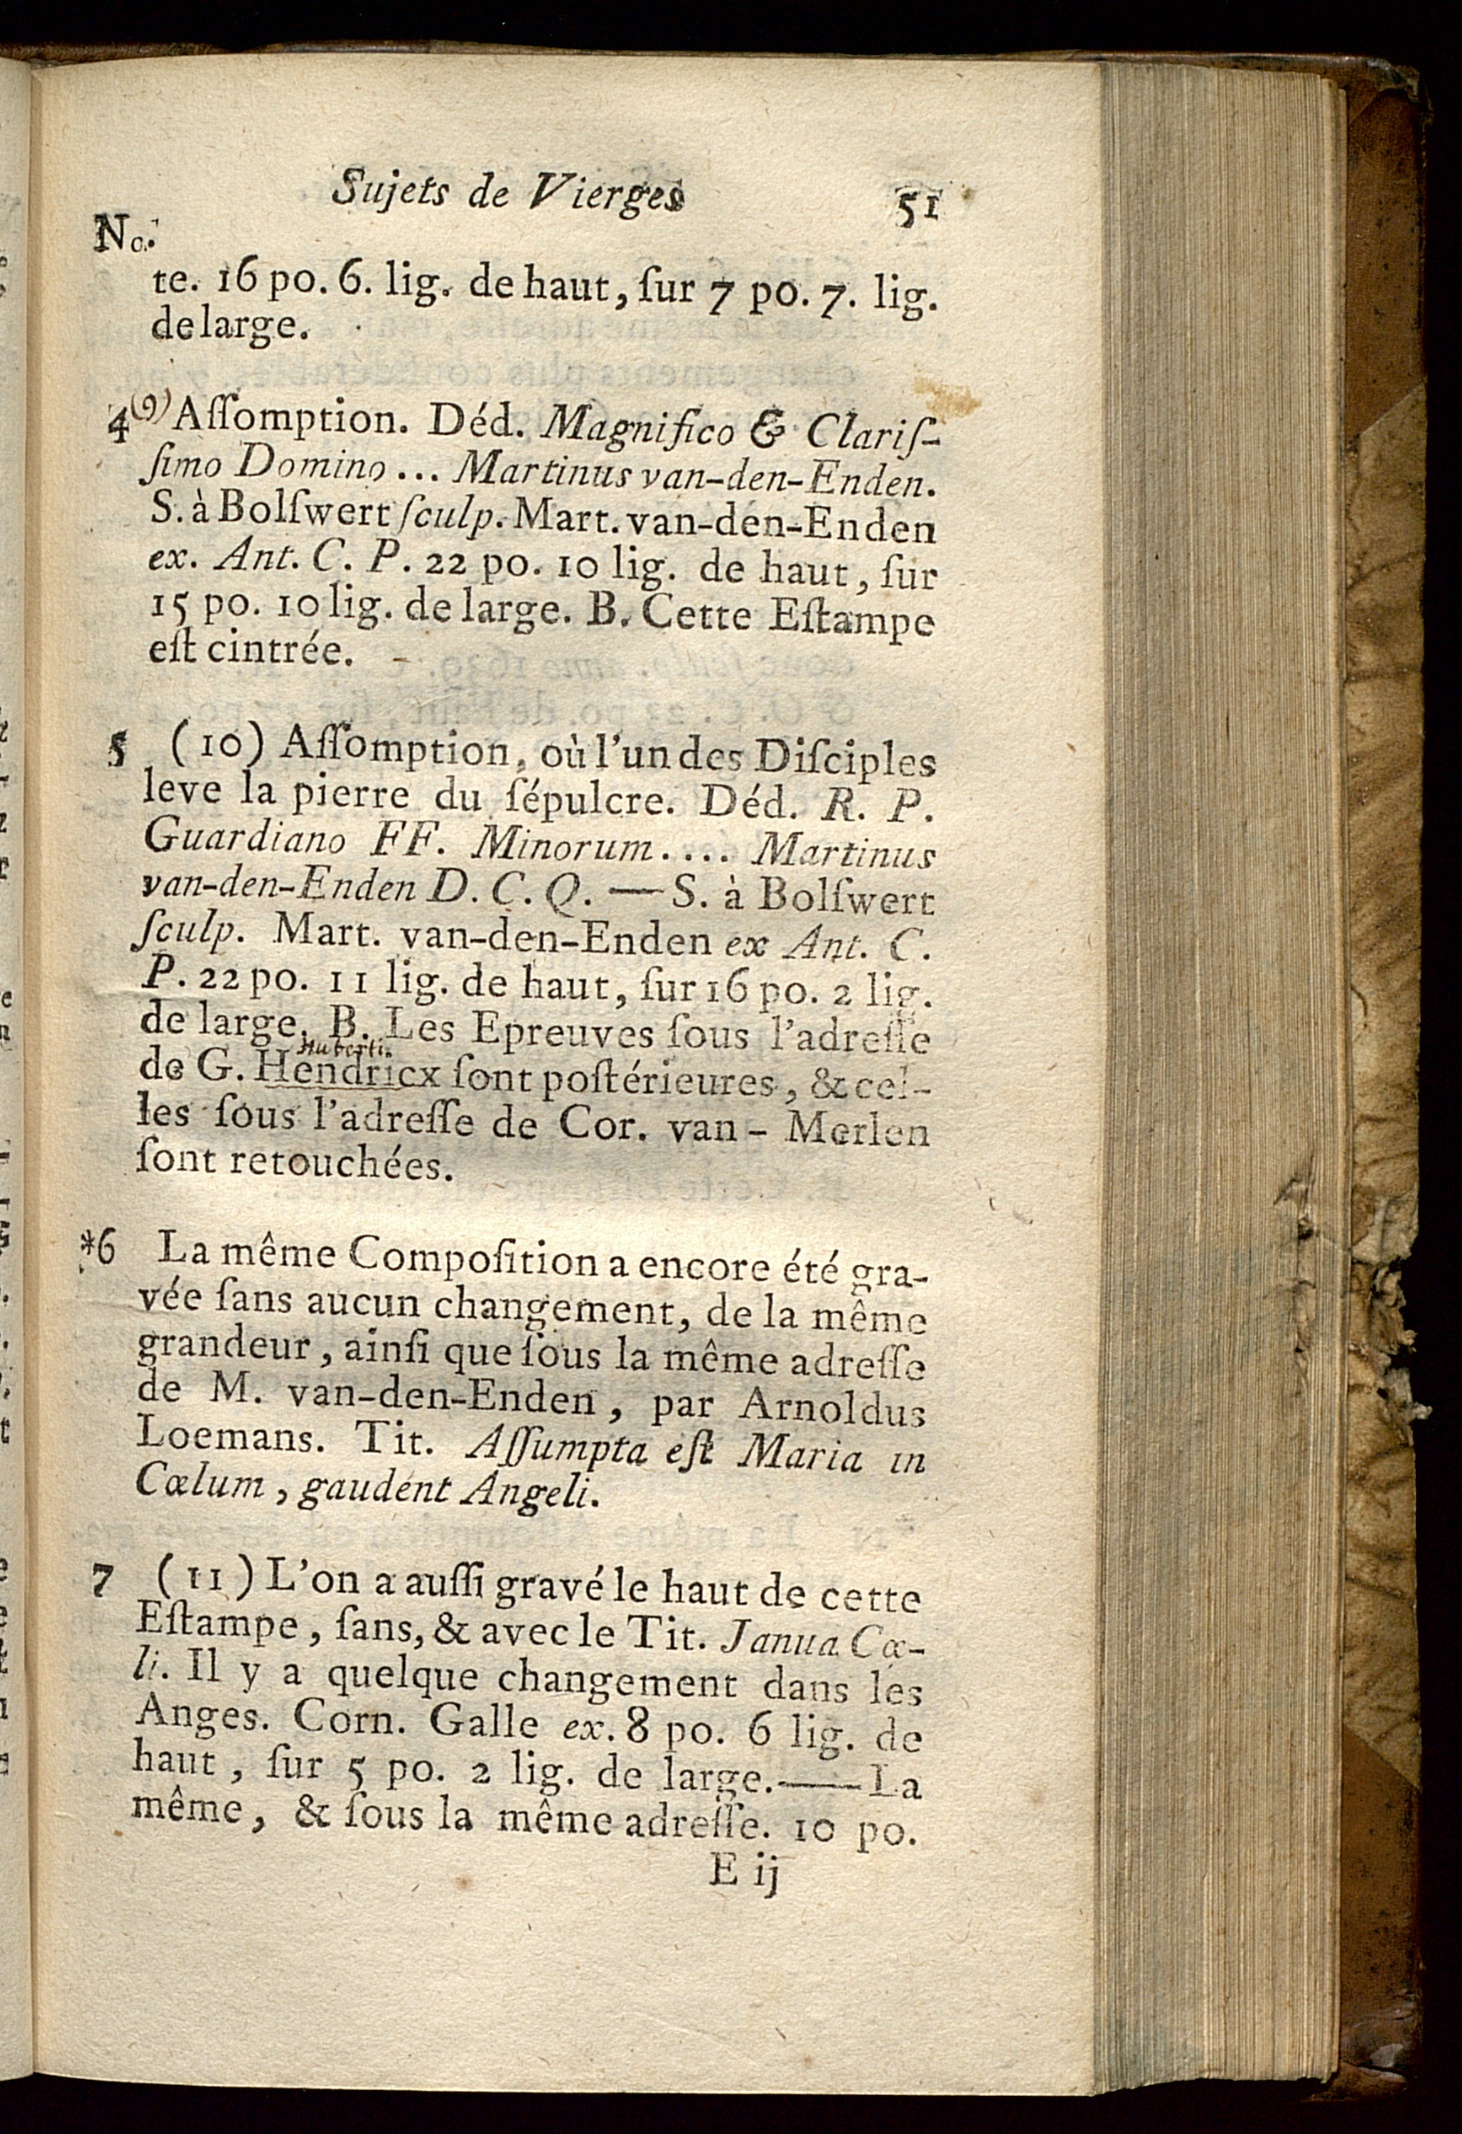 Sujets de Vierges 51
No.
te. 16 po. 6. lig. de haut, ſur 7 po. 7. lig.
de large.
4 (9) Aſſomption. Déd. Magnifico & Clariſ-
ſimo Domino ... Martinus van-den-Enden.
S. à Bolſwert ſculp. Mart. van-den-Enden
ex. Ant. C. P. 22 po. 10 lig. de haut, ſur
15 po. 10 lig. de large. B. Cette Eſtampe
eſt cintrée.
5 (10) Aſſomption, où l'un des Diſciples
leve la pierre du ſépulcre. Déd. R. P.
Guardiano FF. Minorum.... Martinus
van-den-Enden D. C. Q. — S. à Bolſwert
ſculp. Mart. van-den-Enden ex Ant. C.
P. 22 po. 11 lig. de haut, ſur 16 po. 2 lig.
de large. B. Les Epreuves ſous l'adreſſe
Huberti.
de G. Hendricx ſont poſtérieures, & cel-
les ſous l'adreſſe de Cor. van-Merlen
ſont retouchées.
*6 La même Compoſition a encore été gra-
vée ſans aucun changement, de la même
grandeur, ainſi que ſous la même adreſſe
de M. van-den-Enden, par Arnoldus
Loemans. Tit. Aſſumpta eſt Maria in
Cœlum, gaudent Angeli.
7 (11) L'on a auſſi gravé le haut de cette
Eſtampe, ſans, & avec le Tit. Janua Cœ-
li. Il y a quelque changement dans les
Anges. Corn. Galle ex. 8 po. 6 lig. de
haut, ſur 5 po. 2 lig. de large. — La
même, & ſous la même adreſſe. 10 po.
E ij